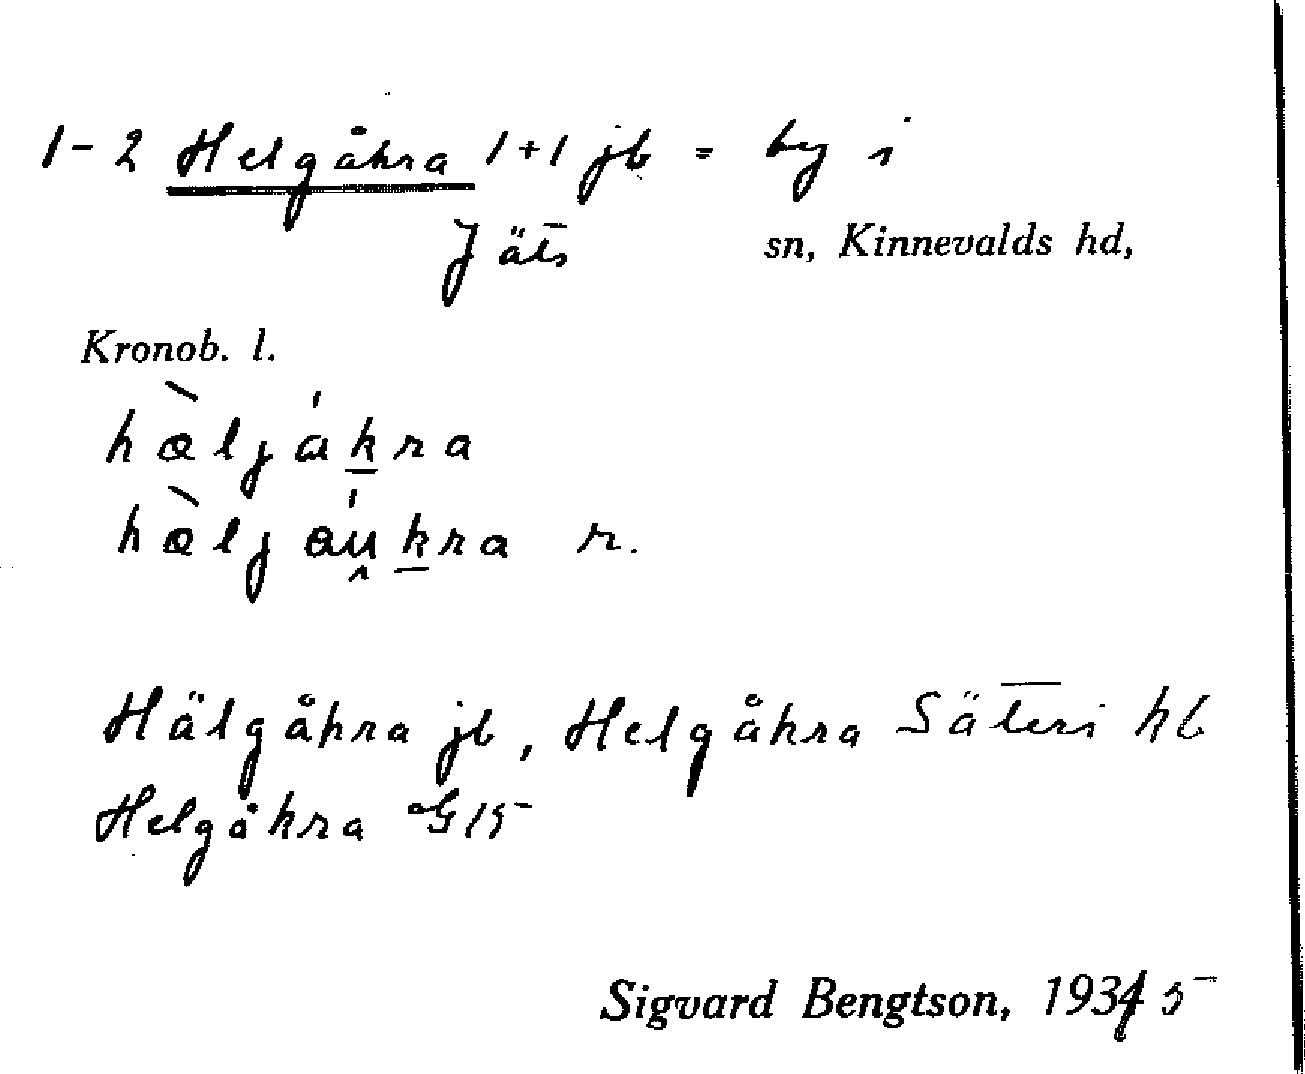 1-2 Helgåkra 1+1 jb = by i
Jäts sn, Kinnevalds hd,
Kronob. l.
hæ̀ljákra
hæ̀ljáu̯kra r.
Hälgåkra jb, Helgåkra Säteri kb
Helgåkra G15
Sigvard Bengtson, 1935